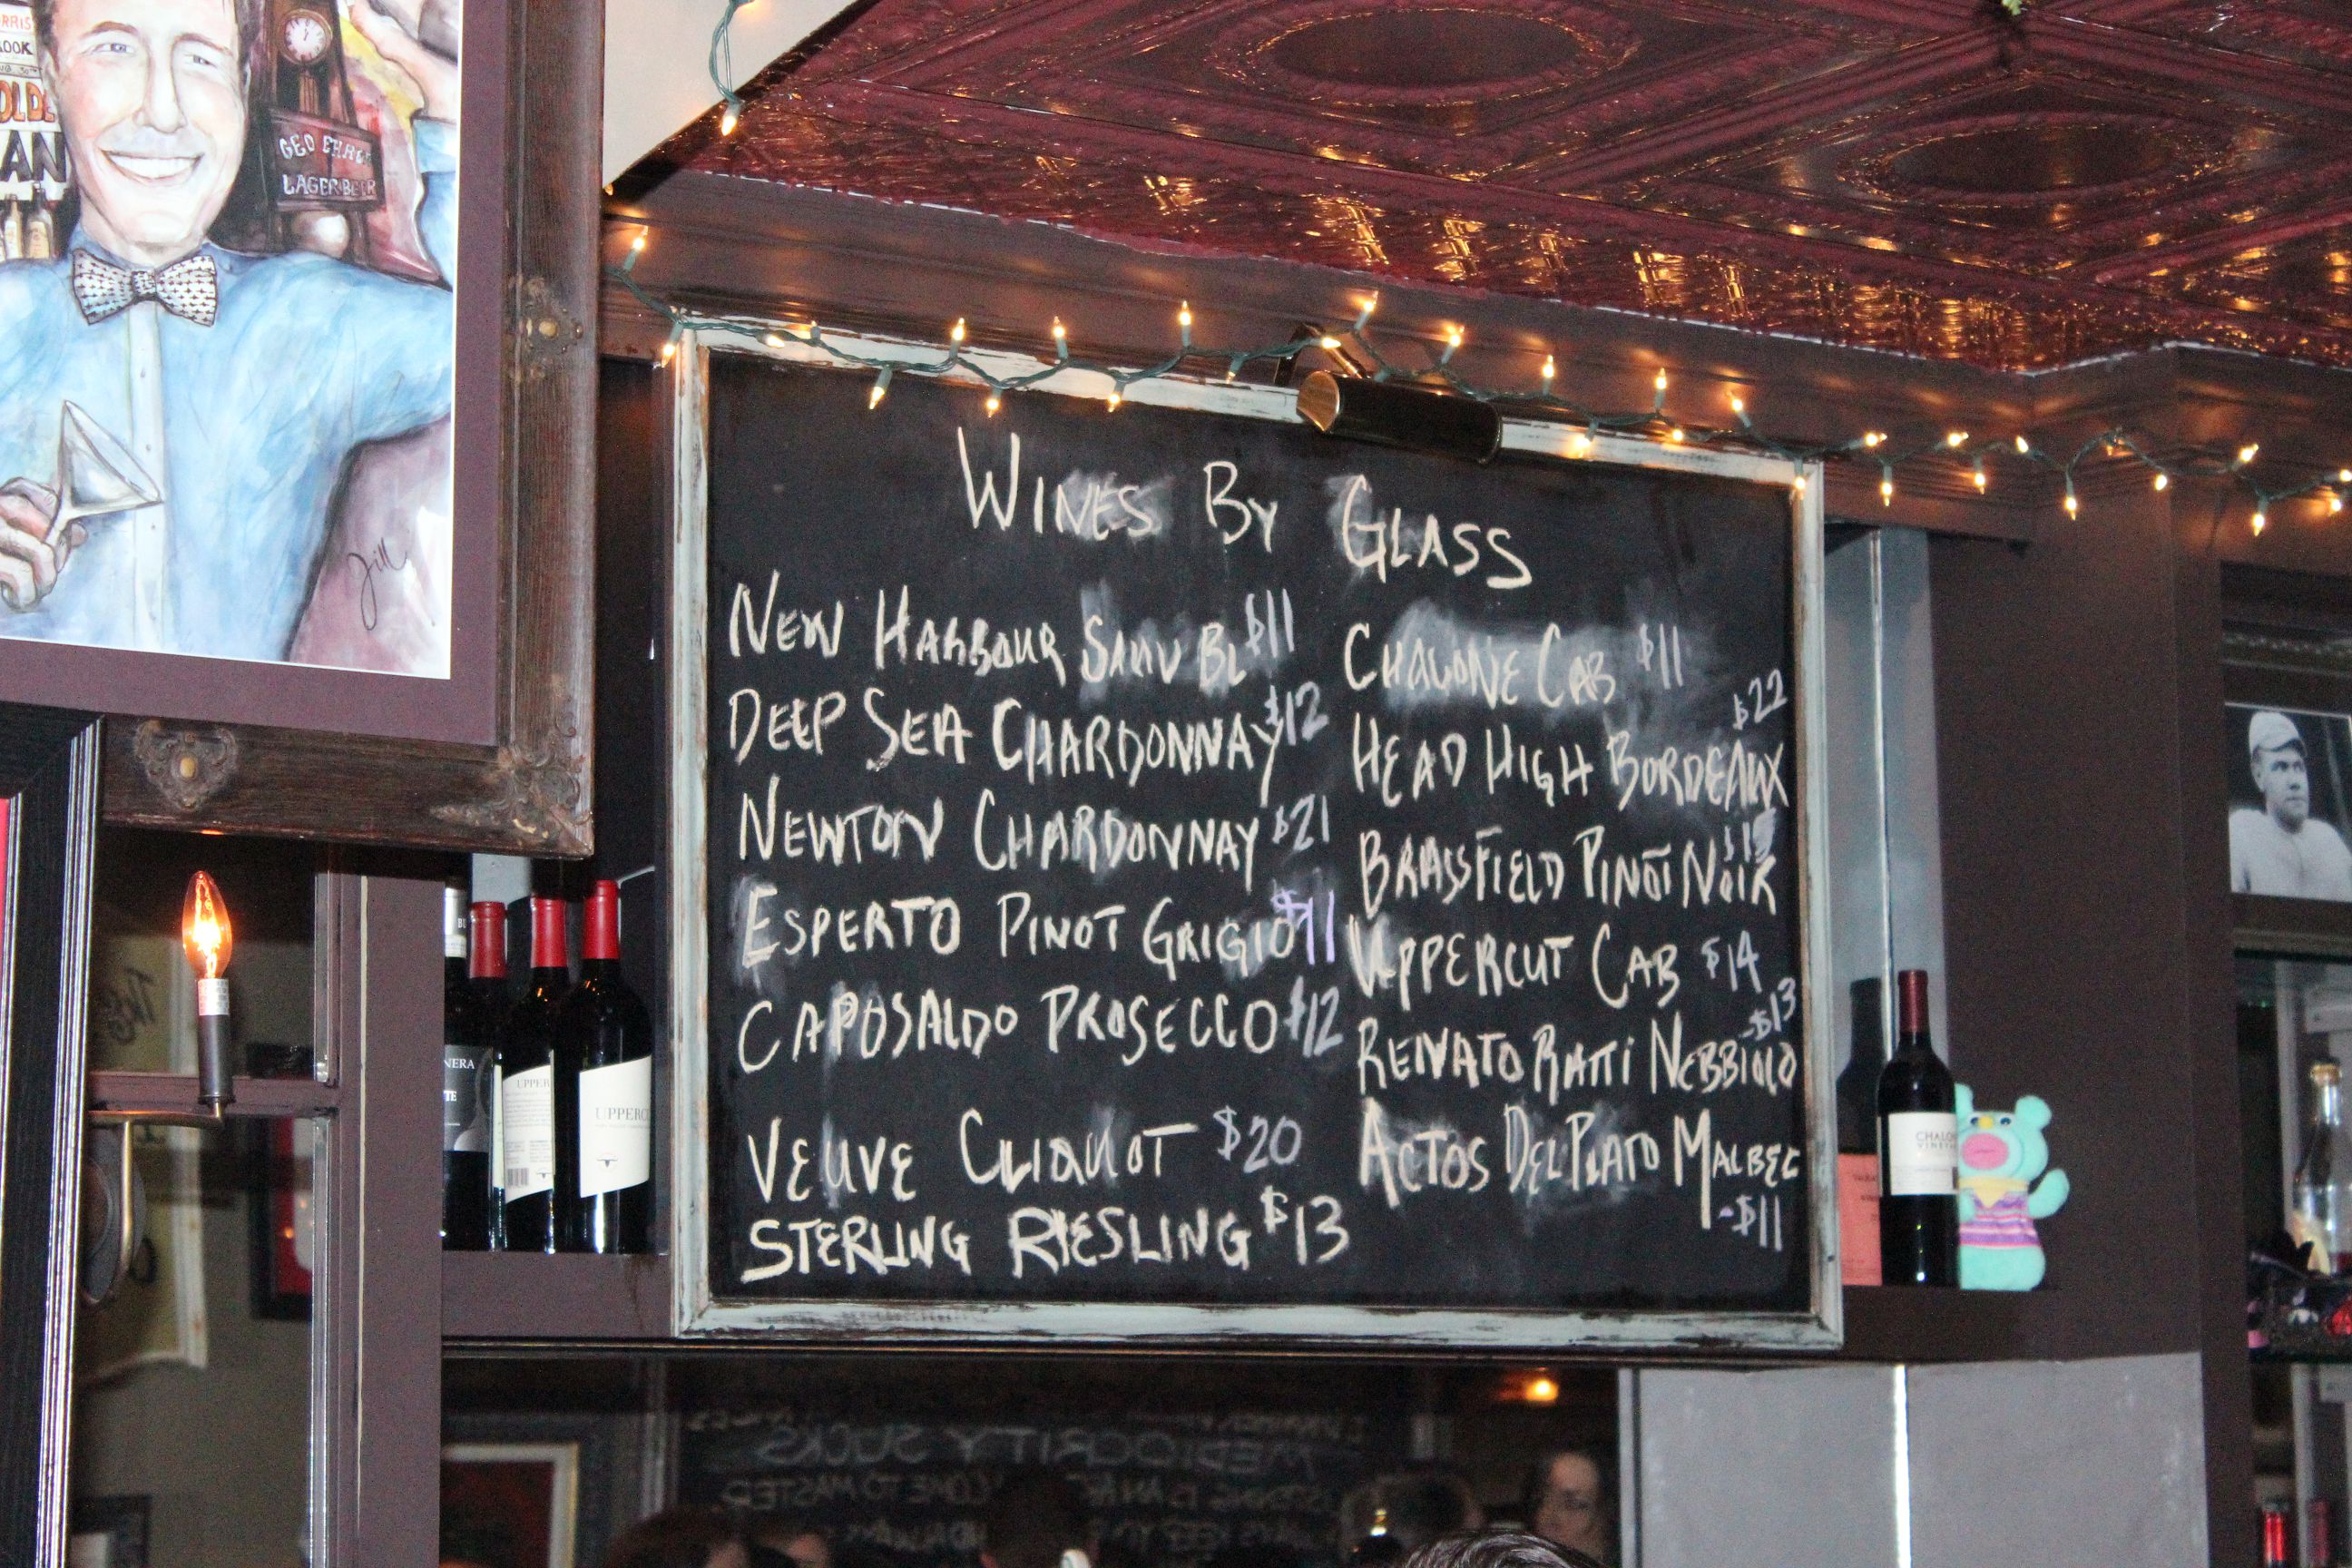 WINES BY GLASS
NEW HARBOUR SAUV BL $11
DEEP SEA CHARDONNAY $12
NEWTON CHARDONNAY $21
ESPERTO PINOT GRIGIO $11
CAPOSALDO PROSECCO $12
VEUVE CLIQUOT $20
STERLING RIESLING $13
CHALONE CAB $11
HEAD HIGH BORDEAUX $22
BRASSFIELD PINOT NOIR
UPPERCUT CAB $14
RENATO RATTI NEBBIOLO -$13
ACTOS DEL PLATO MALBEC
-$11
GEO EHRET
LAGER BEER
OLD
AN
OOK
Jill
NERA
TE
UPPER
UPPERCU
CHALO
MEDIOCRITY SUCKS
COME TO MASTER